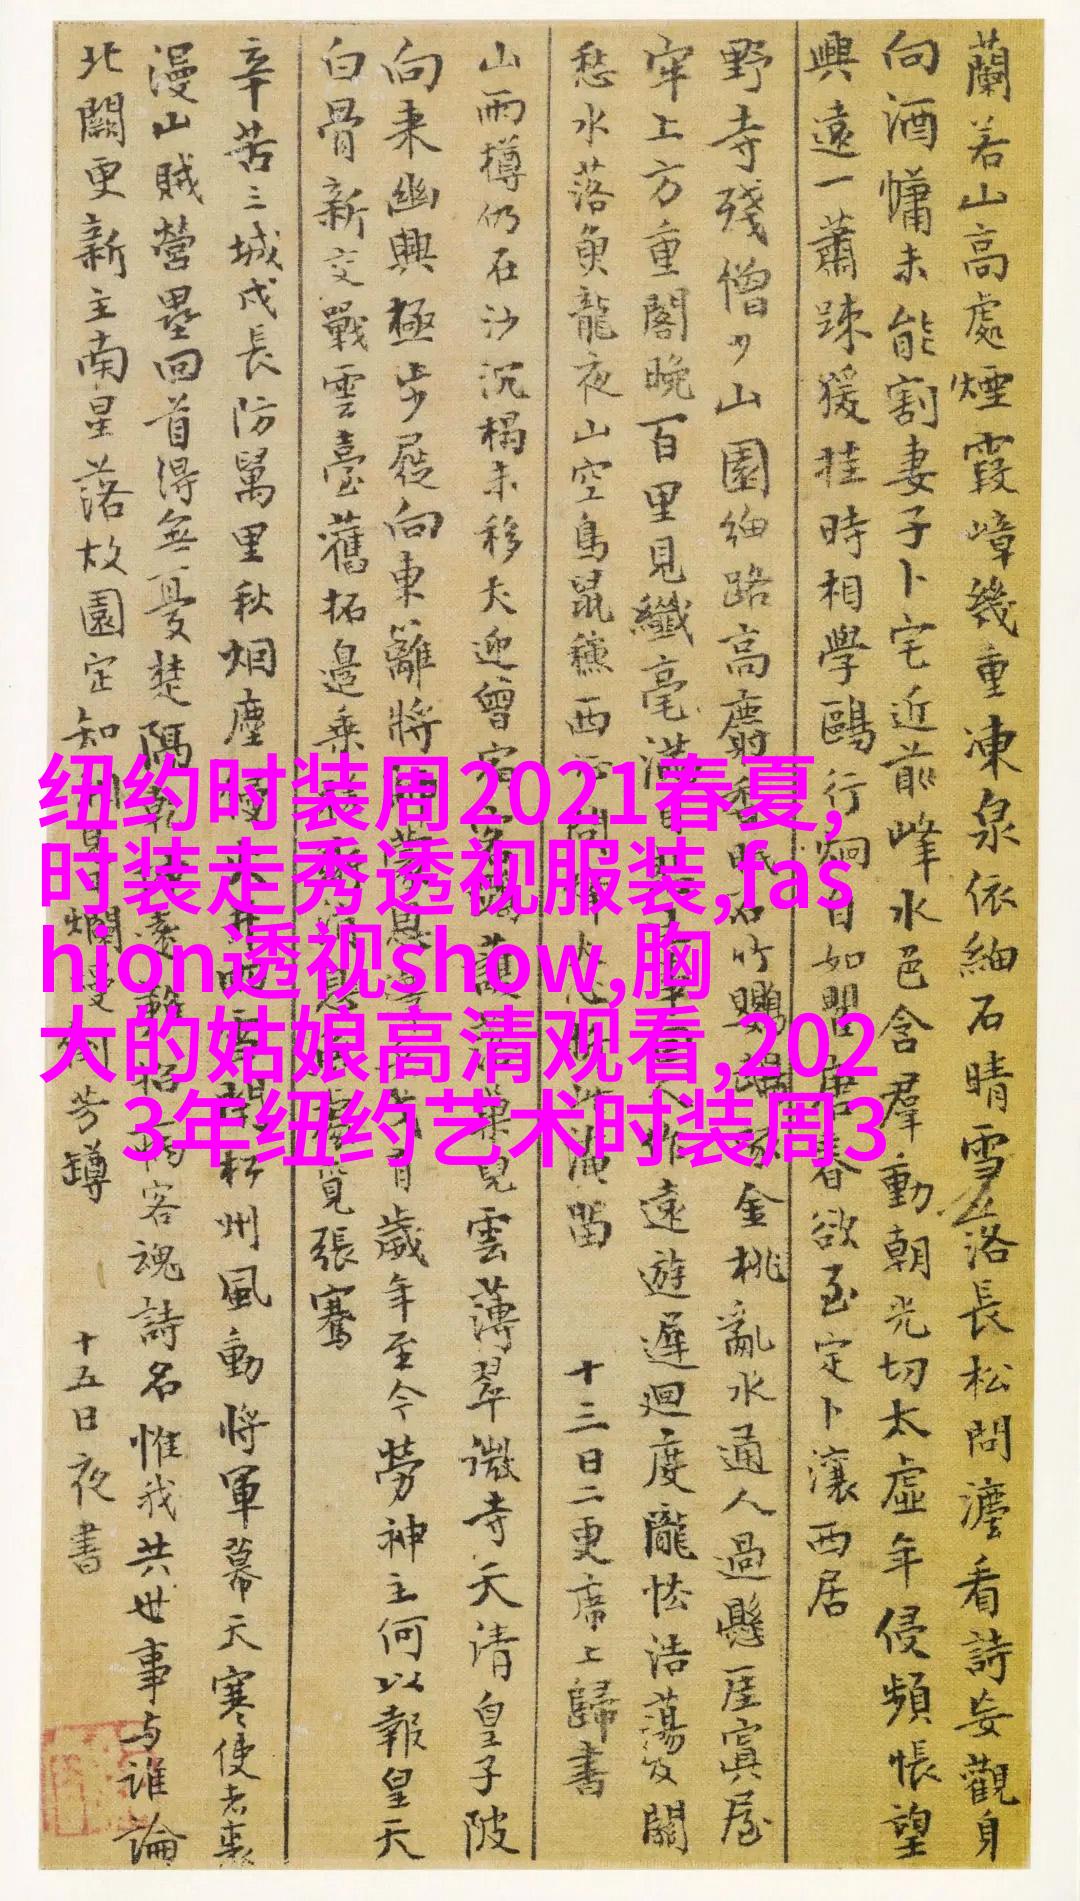 蘭若山高處煙霞嶂幾重凍泉依細石晴雪落長松問灋看詩妄觀身
向酒慵未能割妻子卜宅近前峰水色含羣動朝光切太虛年侵頻悵望
興遠一蕭踈猨挂時相學鷗行炯自如瞿唐春欲至定卜瀼西居
野寺殘僧少山園細路高麝香眠石竹鸚鵡啄金桃亂水通人過懸崖寘屋
牢上方重閣晚百里見纖毫滿目生作遠遊遲迴度隴怯浩蕩及關
愁水落魚龍夜山空鳥鼠穐西問火心折淹留 十三日二更席上歸書
山雨樽仍在沙沉榻未移犬迎曾宿護落巢兒雲薄翠微寺天清皇子陂
向來幽興極步屣向東籬將蒙恩有歲年至今勞神主何以報皇天
白骨新交戰雲臺舊拓邊乘消息處覓張騫
辛苦三城戍長防萬里秋烟塵侵火井雨松州風動將軍幕天寒使者裘
漫山賊營壘回首得無憂楚隔乾遠難招病客魂詩名惟我共世事与誰論
北闕更新主南星落故園定知見日爛熳倒芳罇 十五日夜書
纽约时装周2021春夏,
时装走秀透视服装,fas
hion透视show,胸
大的姑娘高清观看,202
3年纽约艺术时装周3